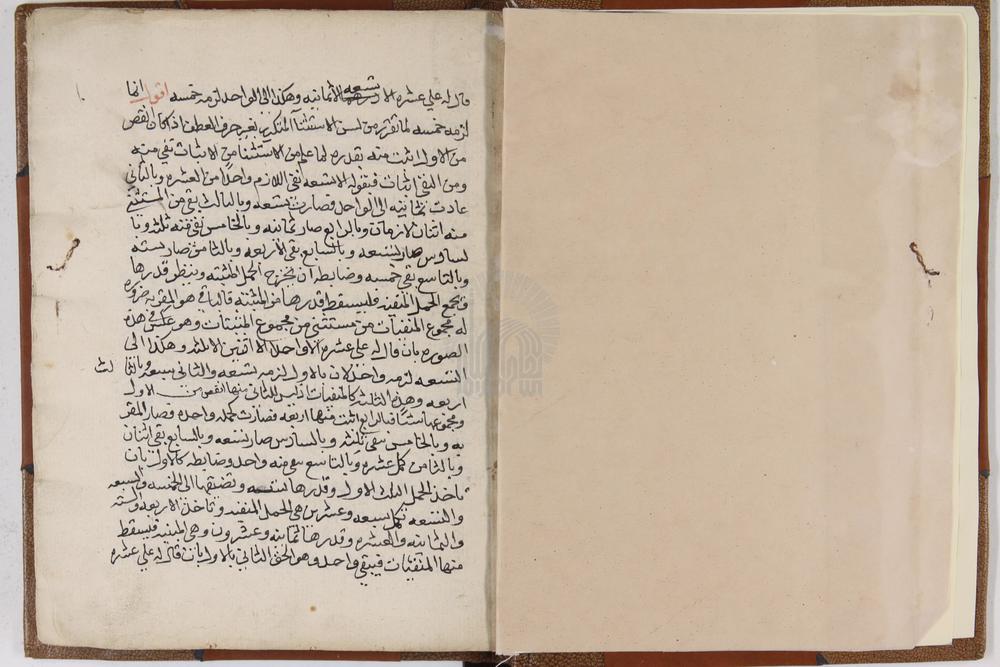 قال له علي عشره الا تسعه الا ثمانيه وهكذا الى الواحد لزمه خمسه اقول انما
لزمه خمسه لما تقرر من ان الاستثنا المتكرر بغير حرف العطف اذا كان انقص
من الاول اثبت منه بقدره لما علم من ان الاستثنا من الاثبات نفي منه
ومن النفي اثبات فبقوله الا تسعه نفى اللازم واحدا من العشره وبالثاني
عادت ثمانيه الى الواحد فصارت تسعه وبالثالث بقي من المستثنى
منه اثنان لازمان وبالرابع صار ثمانيه وبالخامس بقي منه ثلثه وبا
لسادس صار تسعه وبالسابع بقي الاربعه وبالثامن صار سته
وبالتاسع بقي خمسه وضابطه ان تخرج الجمل المثبته وينظر قدرها
وتجمع الجمل المنفيه فيسقط قدرها من المثبته فالباقي هو المقر به ضروره
له مجموع المنفيات من مستثنى من مجموع المثبتات وهو عكس في هذه
الصوره بان قال له علي عشره الا واحدا الا اثنين الا ثلثه وهكذا الى
التسعه لزمه واحد لان بالاول لزمه تسعه والثاني سبعه وبالثا
لث
اربعه وهذه الثلثه كالمنفيات اذ ليس الثاني منها انقص من الاول
ومجموعها ستا فبالرابع اثبت منها اربعه فصارت جمله واحده فصار المقر
به وبالخامس بقي ثلثه وبالسادس صار تسعه وبالسابع بقي اثنان
وبالثامن كمل عشره وبالتاسع بقي منه واحد وضابطه كالاول بان
تاخذ الجمل الثلاث الاول وقدرها سته وتضيفها الى الخمسه والسبعه
والتسعه تكمل سبعه وعشرين هي الجمل المنفيه وتاخذ الاربعه والسته
والثمانيه والعشره وقدرها ثمانيه وعشرون وهي المثبته فيسقط
منها المنفيات فيبقى واحد وهو الحق الثاني بالاول بان قال له علي عشره